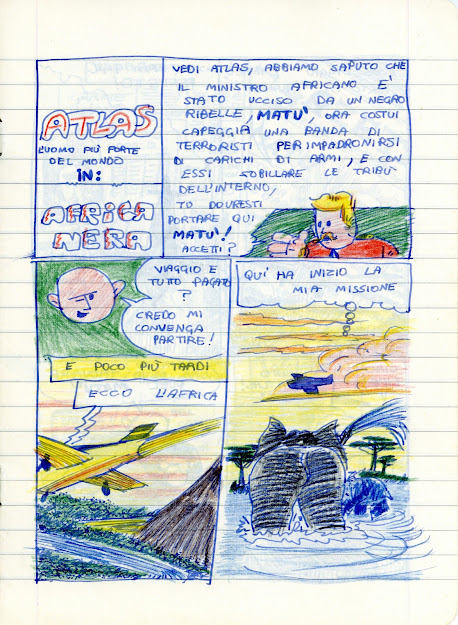 ATLAS
L'UOMO PIÙ FORTE
DEL MONDO
IN:
AFRICA
NERA
VEDI ATLAS, ABBIAMO SAPUTO CHE
IL MINISTRO AFRICANO E'
STATO UCCISO DA UN NEGRO
RIBELLE, MATU', ORA COSTUI
CAPEGGIA UNA BANDA DI
TERRORISTI PER IMPADRONIRSI
DI CARICHI DI ARMI, E CON
ESSI SOBILLARE LE TRIBÙ
DELL'INTERNO,
TU DOVRESTI
PORTARE QUI
MATU'!
ACCETTI?
VIAGGIO E
TUTTO PAGATO
?
CREDO MI
CONVENGA
PARTIRE!
QUI' HA INIZIO LA
MIA MISSIONE
E POCO PIÙ TARDI
ECCO L'AFRICA